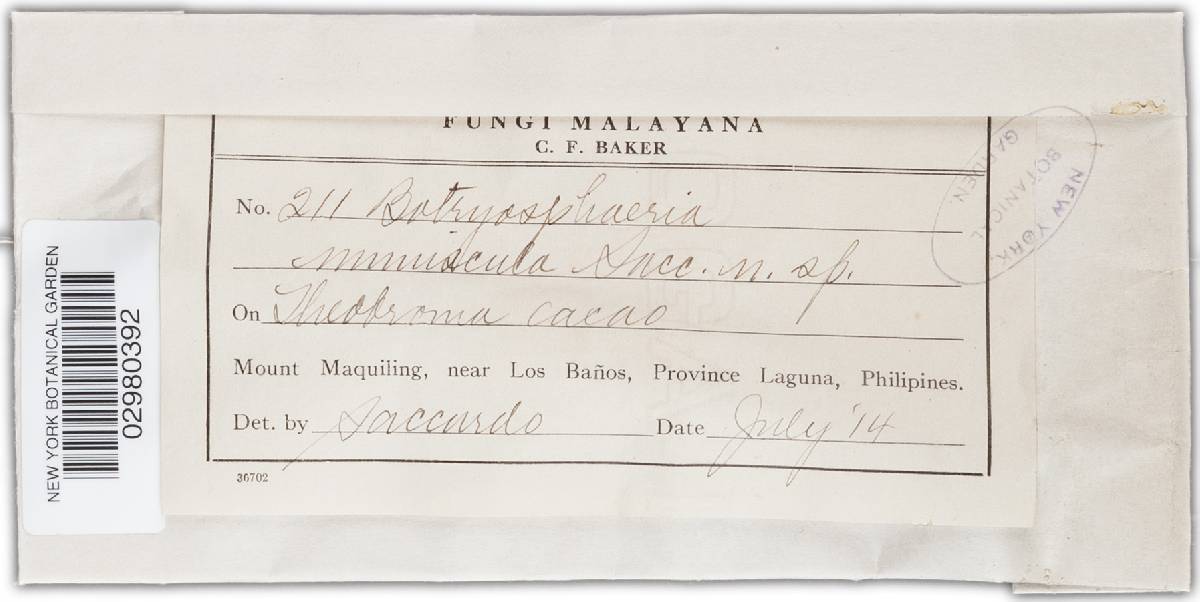 FUNGI MALAYANA
C. F. BAKER
No. 211 Botryosphaeria
minuscula Sacc. n. sp.
On Theobroma cacao
Mount Maquiling, near Los Baños, Province Laguna, Philipines.
Det. by Saccardo Date July '14
36702
NEW YORK BOTANICAL GARDEN
02980392
NEW YORK
BOTANICAL
GARDEN